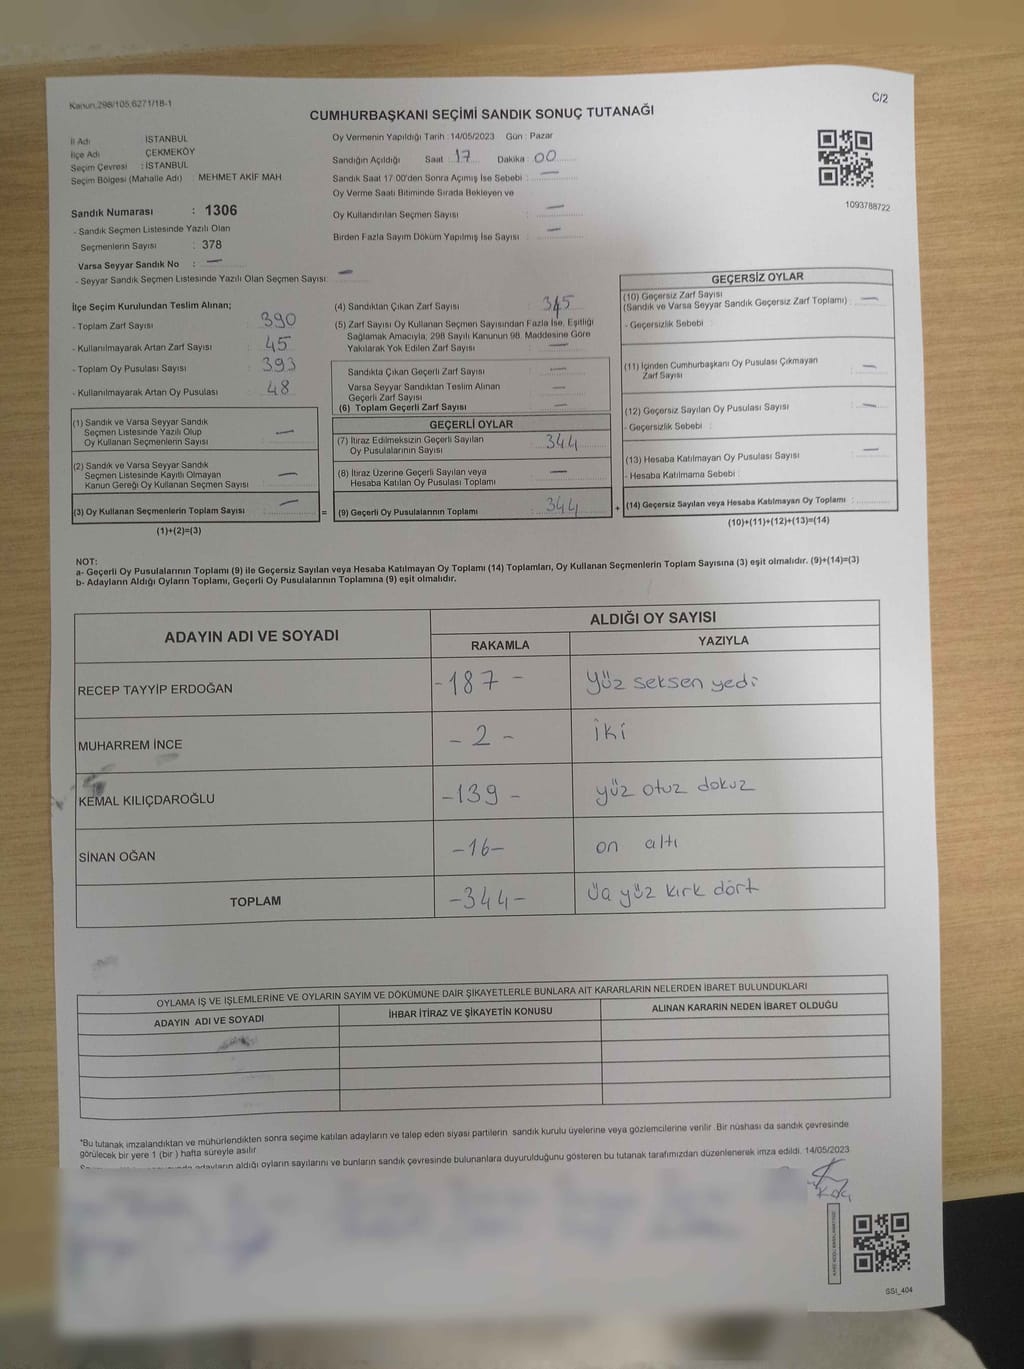 Kanun,298/105,6271/18-1
C/2
CUMHURBAŞKANI SEÇİMİ SANDIK SONUÇ TUTANAĞI
İl Adı İSTANBUL
İlçe Adı ÇEKMEKÖY
Seçim Çevresi : İSTANBUL
Seçim Bölgesi (Mahalle Adı) : MEHMET AKİF MAH
Sandık Numarası : 1306
- Sandık Seçmen Listesinde Yazılı Olan
Seçmenlerin Sayısı : 378
Varsa Seyyar Sandık No : —
- Seyyar Sandık Seçmen Listesinde Yazılı Olan Seçmen Sayısı: —
Oy Vermenin Yapıldığı Tarih : 14/05/2023 Gün : Pazar
Sandığın Açıldığı Saat : 17 Dakika : 00
Sandık Saat 17.00'den Sonra Açımış İse Sebebi : —
Oy Verme Saati Bitiminde Sırada Bekleyen ve
Oy Kullandırılan Seçmen Sayısı : —
Birden Fazla Sayım Döküm Yapılmış İse Sayısı : —
1093788722
İlçe Seçim Kurulundan Teslim Alınan;
- Toplam Zarf Sayısı : 390
- Kullanılmayarak Artan Zarf Sayısı : 45
- Toplam Oy Pusulası Sayısı : 393
- Kullanılmayarak Artan Oy Pusulası : 48
(1) Sandık ve Varsa Seyyar Sandık
Seçmen Listesinde Yazılı Olup
Oy Kullanan Seçmenlerin Sayısı : —
(2) Sandık ve Varsa Seyyar Sandık
Seçmen Listesinde Kayıtlı Olmayan
Kanun Gereği Oy Kullanan Seçmen Sayısı : —
(3) Oy Kullanan Seçmenlerin Toplam Sayısı : —
(1)+(2)=(3)
=
(4) Sandıktan Çıkan Zarf Sayısı : 345
(5) Zarf Sayısı Oy Kullanan Seçmen Sayısından Fazla İse, Eşitliği
Sağlamak Amacıyla, 298 Sayılı Kanunun 98. Maddesine Göre
Yakılarak Yok Edilen Zarf Sayısı : —
Sandıkta Çıkan Geçerli Zarf Sayısı : —
Varsa Seyyar Sandıktan Teslim Alınan
Geçerli Zarf Sayısı : —
(6) Toplam Geçerli Zarf Sayısı : —
GEÇERLİ OYLAR
(7) İtiraz Edilmeksizin Geçerli Sayılan
Oy Pusulalarının Sayısı : 344
(8) İtiraz Üzerine Geçerli Sayılan veya
Hesaba Katılan Oy Pusulası Toplamı : —
(9) Geçerli Oy Pusulalarının Toplamı : 344
+
GEÇERSİZ OYLAR
(10) Geçersiz Zarf Sayısı
(Sandık ve Varsa Seyyar Sandık Geçersiz Zarf Toplamı) : —
- Geçersizlik Sebebi :
(11) İçinden Cumhurbaşkanı Oy Pusulası Çıkmayan
Zarf Sayısı : —
(12) Geçersiz Sayılan Oy Pusulası Sayısı : —
- Geçersizlik Sebebi :
(13) Hesaba Katılmayan Oy Pusulası Sayısı : —
- Hesaba Katılmama Sebebi :
(14) Geçersiz Sayılan veya Hesaba Katılmayan Oy Toplamı :
(10)+(11)+(12)+(13)=(14)
NOT:
a- Geçerli Oy Pusulalarının Toplamı (9) ile Geçersiz Sayılan veya Hesaba Katılmayan Oy Toplamı (14) Toplamları, Oy Kullanan Seçmenlerin Toplam Sayısına (3) eşit olmalıdır. (9)+(14)=(3)
b- Adayların Aldığı Oyların Toplamı, Geçerli Oy Pusulalarının Toplamına (9) eşit olmalıdır.
ADAYIN ADI VE SOYADI
ALDIĞI OY SAYISI
RAKAMLA YAZIYLA
RECEP TAYYİP ERDOĞAN -187- Yüz seksen yedi
MUHARREM İNCE -2- İki
KEMAL KILIÇDAROĞLU -139- yüz otuz dokuz
SİNAN OĞAN -16- on altı
TOPLAM -344- Üç yüz kırk dört
OYLAMA İŞ VE İŞLEMLERİNE VE OYLARIN SAYIM VE DÖKÜMÜNE DAİR ŞİKAYETLERLE BUNLARA AİT KARARLARIN NELERDEN İBARET BULUNDUKLARI
ADAYIN ADI VE SOYADI İHBAR İTİRAZ VE ŞİKAYETİN KONUSU ALINAN KARARIN NEDEN İBARET OLDUĞU
*Bu tutanak imzalandıktan ve mühürlendikten sonra seçime katılan adayların ve talep eden siyasi partilerin sandık kurulu üyelerine veya gözlemcilerine verilir .Bir nüshası da sandık çevresinde
görülecek bir yere 1 (bir ) hafta süreyle asılır.
adayların aldığı oyların sayılarını ve bunların sandık çevresinde bulunanlara duyurulduğunu gösteren bu tutanak tarafımızdan düzenlenerek imza edildi. 14/05/2023
SSI_404